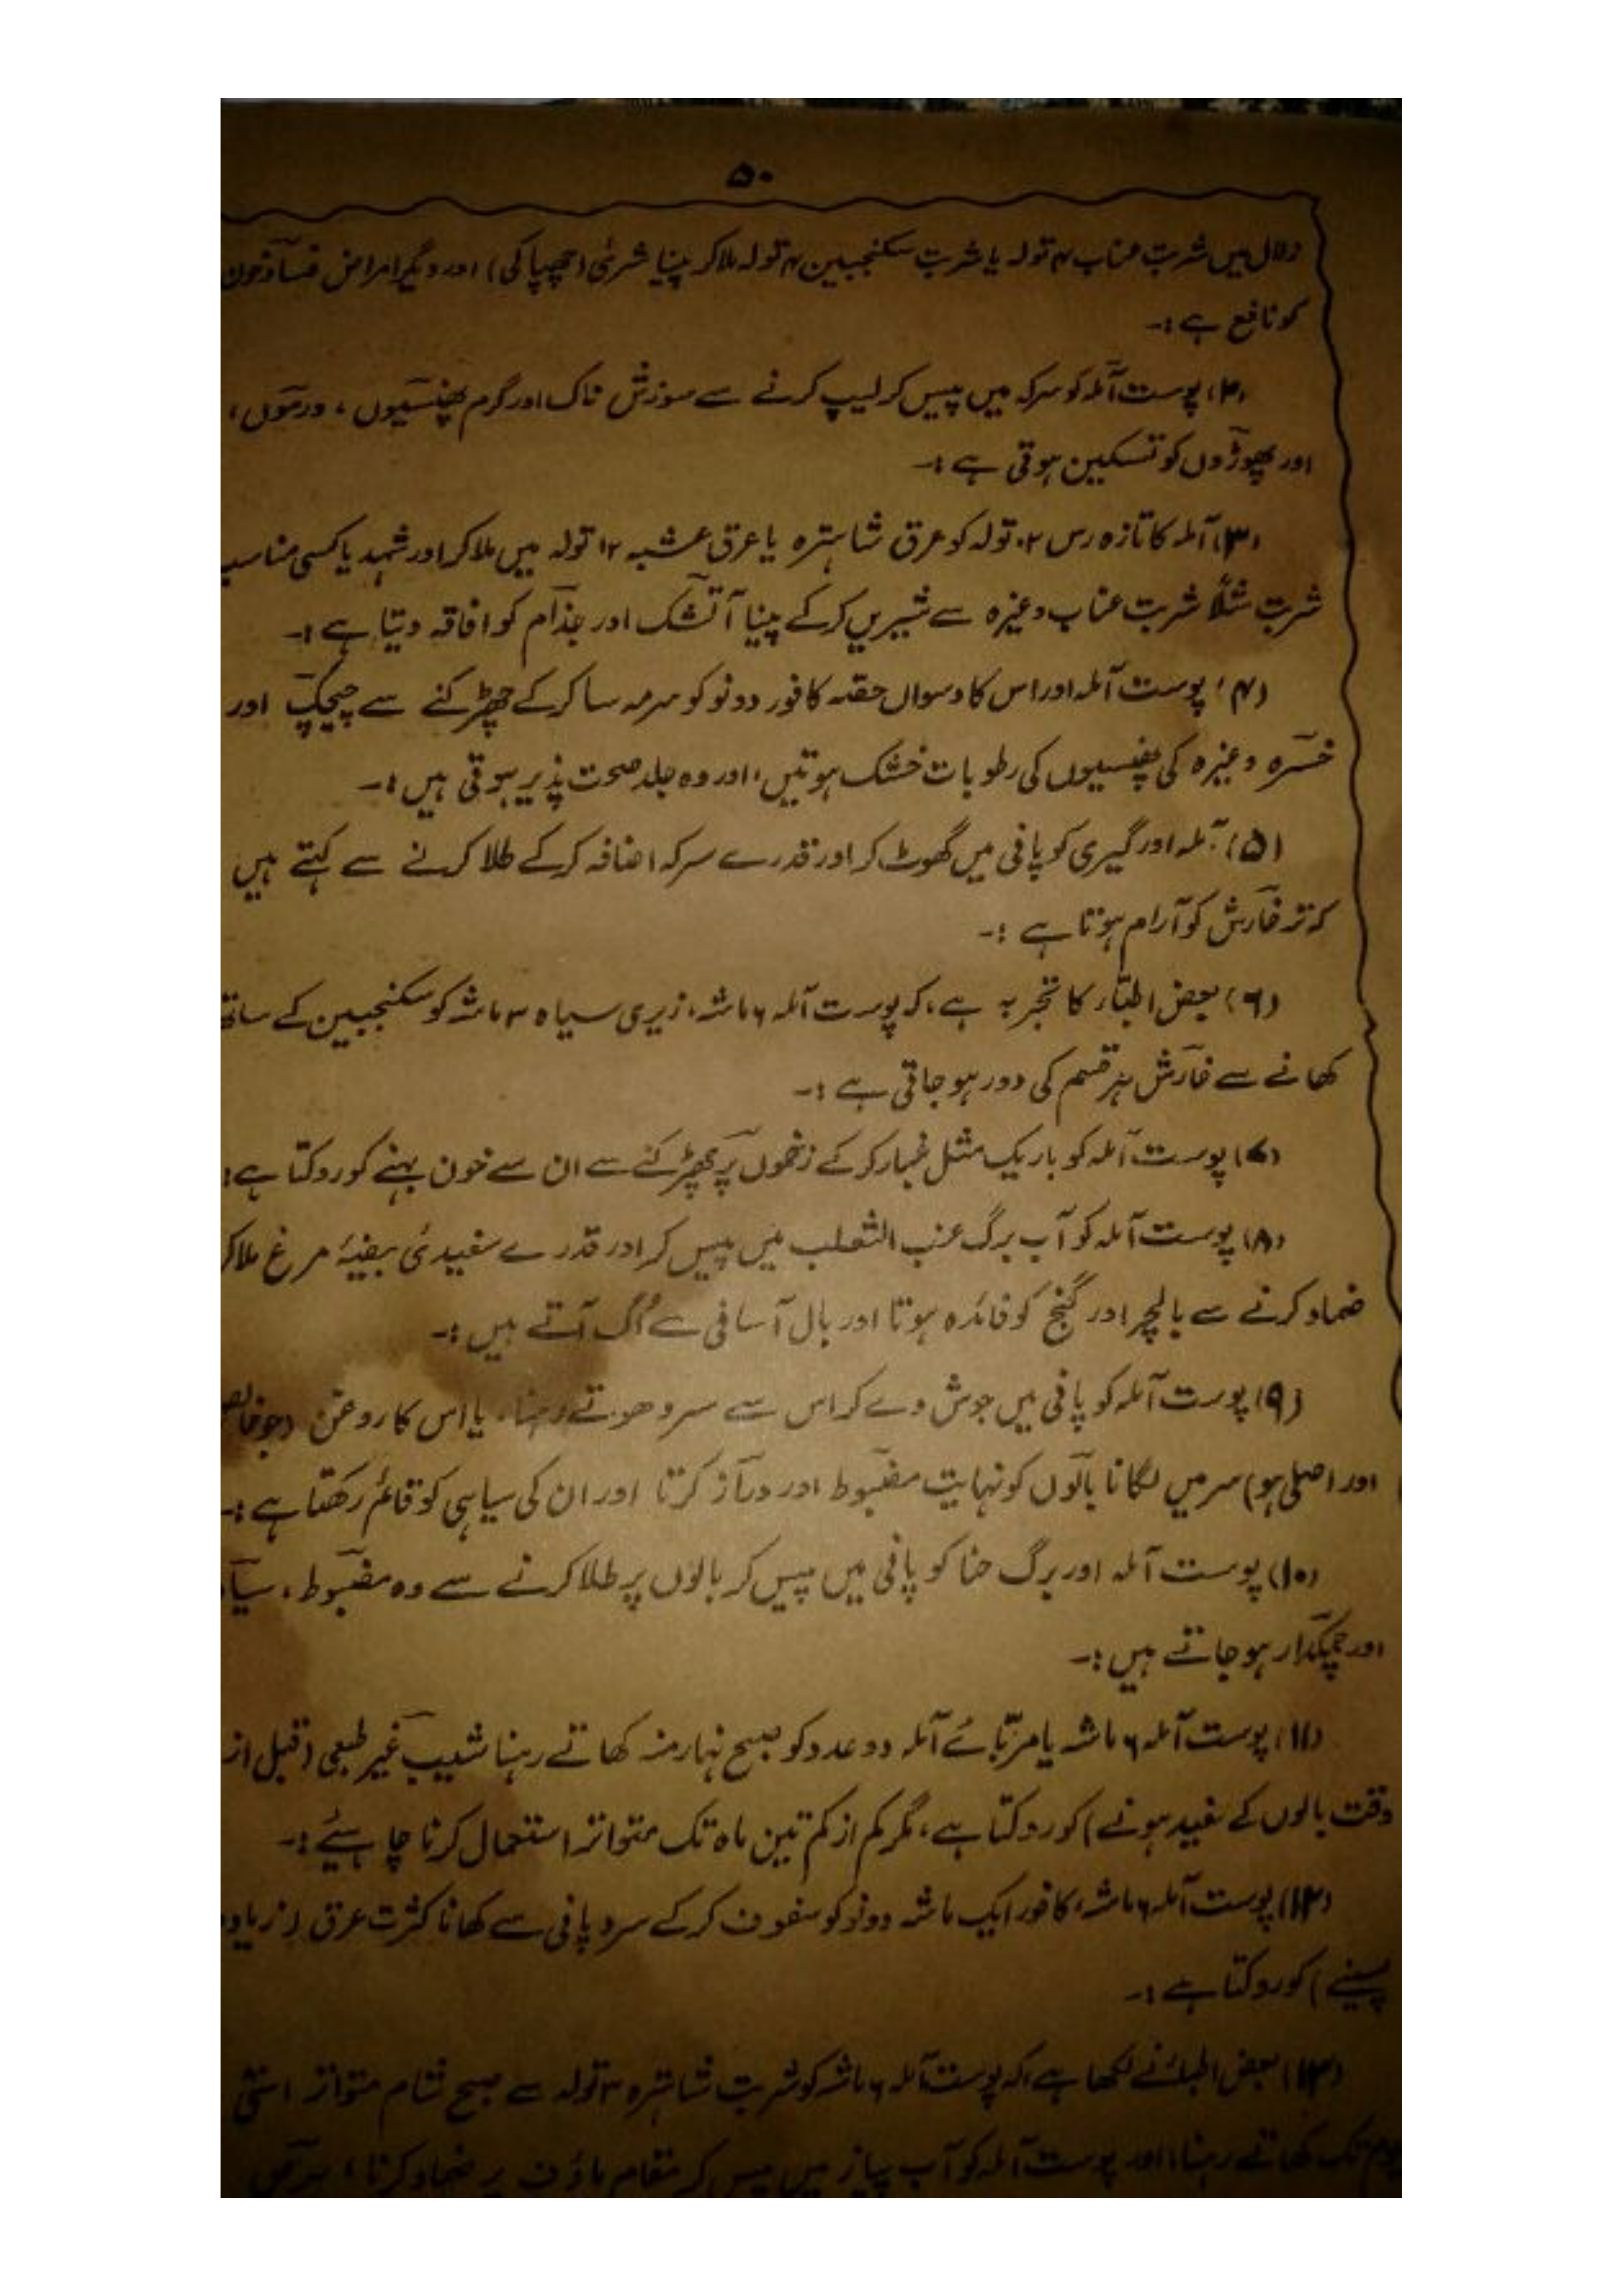 ۵۰
زلال میں شربت عناب ۴ تولہ یا شربت سکنجبین ۴ تولہ ملا کر پینا شرئی (چھپاکی) اور دیگر امراض فساد خون
کو نافع ہے :۔
(۲) پوست آملہ کو سرکہ میں پیس کر لیپ کرنے سے سوزش ناک اور گرم پھنسیوں ، ورموں ،
اور پھوڑوں کو تسکین ہوتی ہے :۔
(۳) آملہ کا تازہ رس ۲ تولہ کو عرق شاہترہ یا عرق عشبہ ۱۲ تولہ میں ملا کر اور شہد یا کسی مناسب
شربت مثلاً شربت عناب وغیرہ سے شیریں کر کے پینا آتشک اور جذام کو افاقہ دیتا ہے :۔
(۴) پوست آملہ اور اس کا دسواں حصّہ کافور دونو کو سرمہ سا کر کے چھڑکنے سے چیچک اور
خسرہ وغیرہ کی پھنسیوں کی رطوبات خشک ہوتیں، اور وہ جلد صحت پذیر ہوتی ہیں :۔
(۵) آملہ اور گیری کو پانی میں گھوٹ کر اور قدرے سرکہ اضافہ کر کے طلا کرنے سے کہتے ہیں
کہ تر خارش کو آرام ہوتا ہے :۔
(۶) بعض اطبّاء کا تجربہ ہے، کہ پوست آملہ ۶ ماشہ، زیری سیاہ ۳ ماشہ کو سکنجبین کے ساتھ
کھانے سے خارش ہر قسم کی دور ہو جاتی ہے :۔
(۷) پوست آملہ کو باریک مثل غبار کر کے زخموں پر چھڑکنے سے ان سے خون بہنے کو روکتا ہے :
(۸) پوست آملہ کو آب برگ عنب الثعلب میں پیس کر اور قدرے سفیدئی بیضۂ مرغ ملا کر
ضماد کرنے سے بالچر اور گنج کو فائدہ ہوتا اور بال آسانی سے اُگ آتے ہیں :۔
(۹) پوست آملہ کو پانی میں جوش دے کر اس سے سر دھوتے رہنا، یا اس کا روغن (جو خالص
اور اصلی ہو) سر میں لگانا بالوں کو نہایت مضبوط اور دراز کرتا اور ان کی سیاہی کو قائم رکھتا ہے :۔
(۱۰) پوست آملہ اور برگ حنا کو پانی میں پیس کر بالوں پر طلا کرنے سے وہ مضبوط ، سیاہ
اور چمکدار ہو جاتے ہیں :۔
(۱۱) پوست آملہ ۶ ماشہ یا مربّائے آملہ دو عدد کو صبح نہار منہ کھاتے رہنا شیب غیر طبعی (قبل از
وقت بالوں کے سفید ہونے) کو روکتا ہے، مگر کم از کم تین ماہ تک متواتر استعمال کرنا چاہیئے :۔
(۱۲) پوست آملہ ۶ ماشہ، کافور ایک ماشہ دونو کو سفوف کر کے سرد پانی سے کھانا کثرت عرق (زیادہ
پسینے) کو روکتا ہے :۔
(۱۳) بعض اطباء نے لکھا ہے، کہ پوست آملہ ۶ ماشہ کو شربت شاہترہ ۳ تولہ سے صبح شام متواتر اسّی
یوم تک کھاتے رہنا، اور پوست آملہ کو آب پیاز میں پیس کر مقام ماؤف پر ضماد کرنا ،